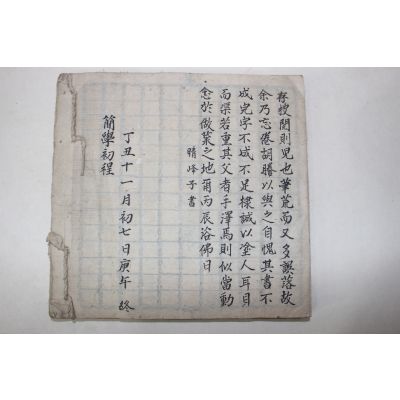 存授閱則児也筆荒而又多誤落故
余乃忘倦胡謄以與之自愧其書不
成完字不成不足棣誠以塗人耳目
而渠若重其父者手澤焉則似當動
念於做業之地爾丙辰浴佛日
晴峰子書
丁丑十一月初七日庚午 終
簡學初程